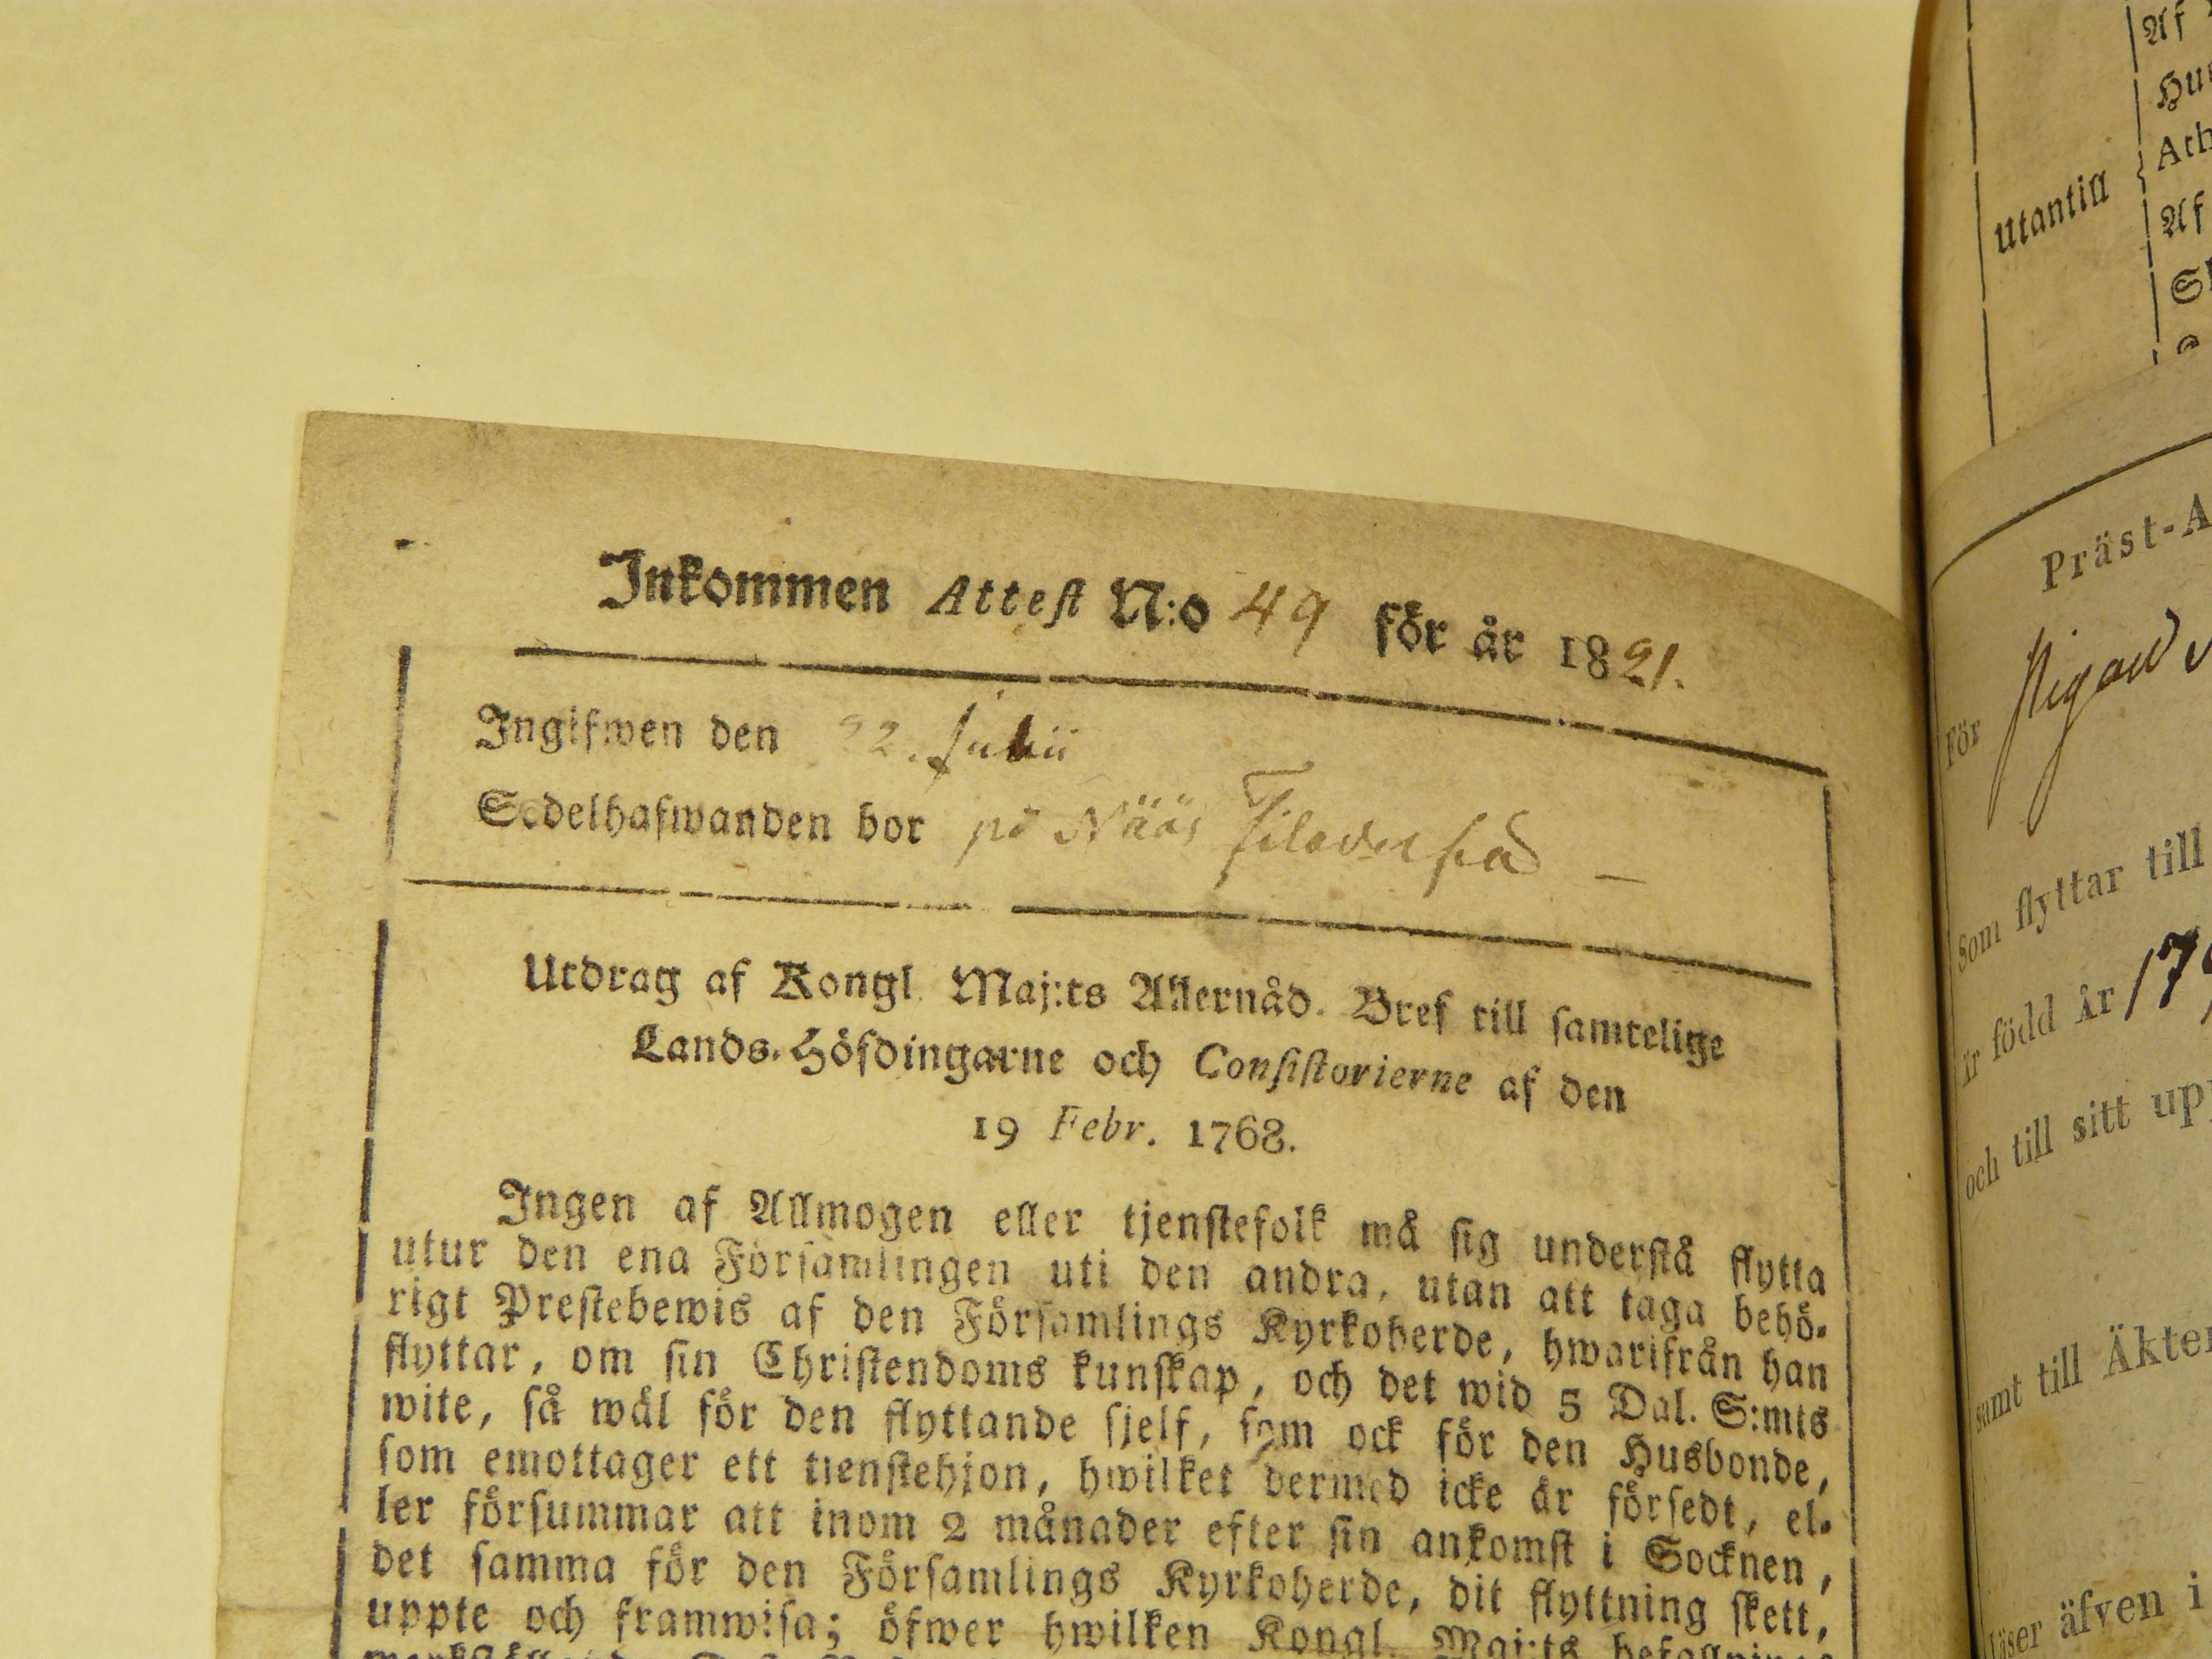 Inkommen Attest N:o 49 för år 1821.
Ingifwen den 22. Julii
Sedelhafwanden bor på Nääs
Utdrag af Kongl. Maj:ts Allernåd. Bref till samtelige
Lands-Höfdingarne och Consistorierne af den
19 Febr. 1768.
Ingen af Allmogen eller tjenstefolk må sig understå flytta
utur den ena Församlingen uti den andra, utan att taga behö-
rigt Prestebewis af den Församlings Kyrkoherde, hwarifrån han
flyttar, om sin Christendoms kunskap, och det wid 5 Dal. S:mts
wite, så wäl för den flyttande sjelf, som ock för den Husbonde,
som emottager ett tienstehjon, hwilket dermed icke är försedt, el-
ler försummar att inom 2 månader efter sin ankomst i Socknen,
det samma för den Församlings Kyrkoherde, dit flyttning skett,
uppte och framwisa; öfwer hwilken Kongl. Maj:ts befallning
Af
Hu
Ath
Utantill
Af
Präst-A
För
Som flyttar till
är född År 17
och till sitt upp
samt till Äkten
läser äfven i